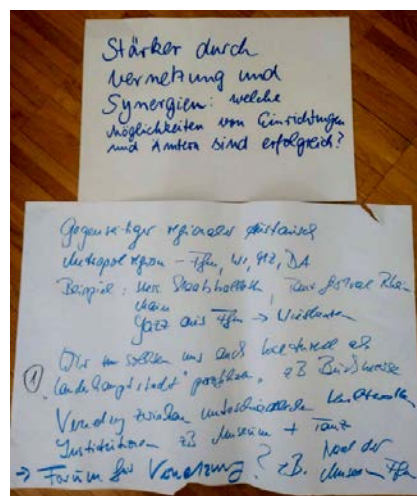 Stärker durch
Vernetzung und
Synergien: welche
Möglichkeiten von Einrichtungen
und Ämtern sind erfolgreich?
Gegenseitiger regionaler Austausch
Metropolregion - Ffm, WI, MZ, DA
Beispiel: Hess. Staatsballett, Tanzfestival Rhein
Main
Jazz aus Ffm → Wiesbaden
① sollten uns auch als
"Landeshauptstadt" , zB
Vernetzung zwischen unterschiedlichen
Institutionen zB Museum + Tanz
→ Forum für Vernetzung? zB. Nacht der
Museen Ffm